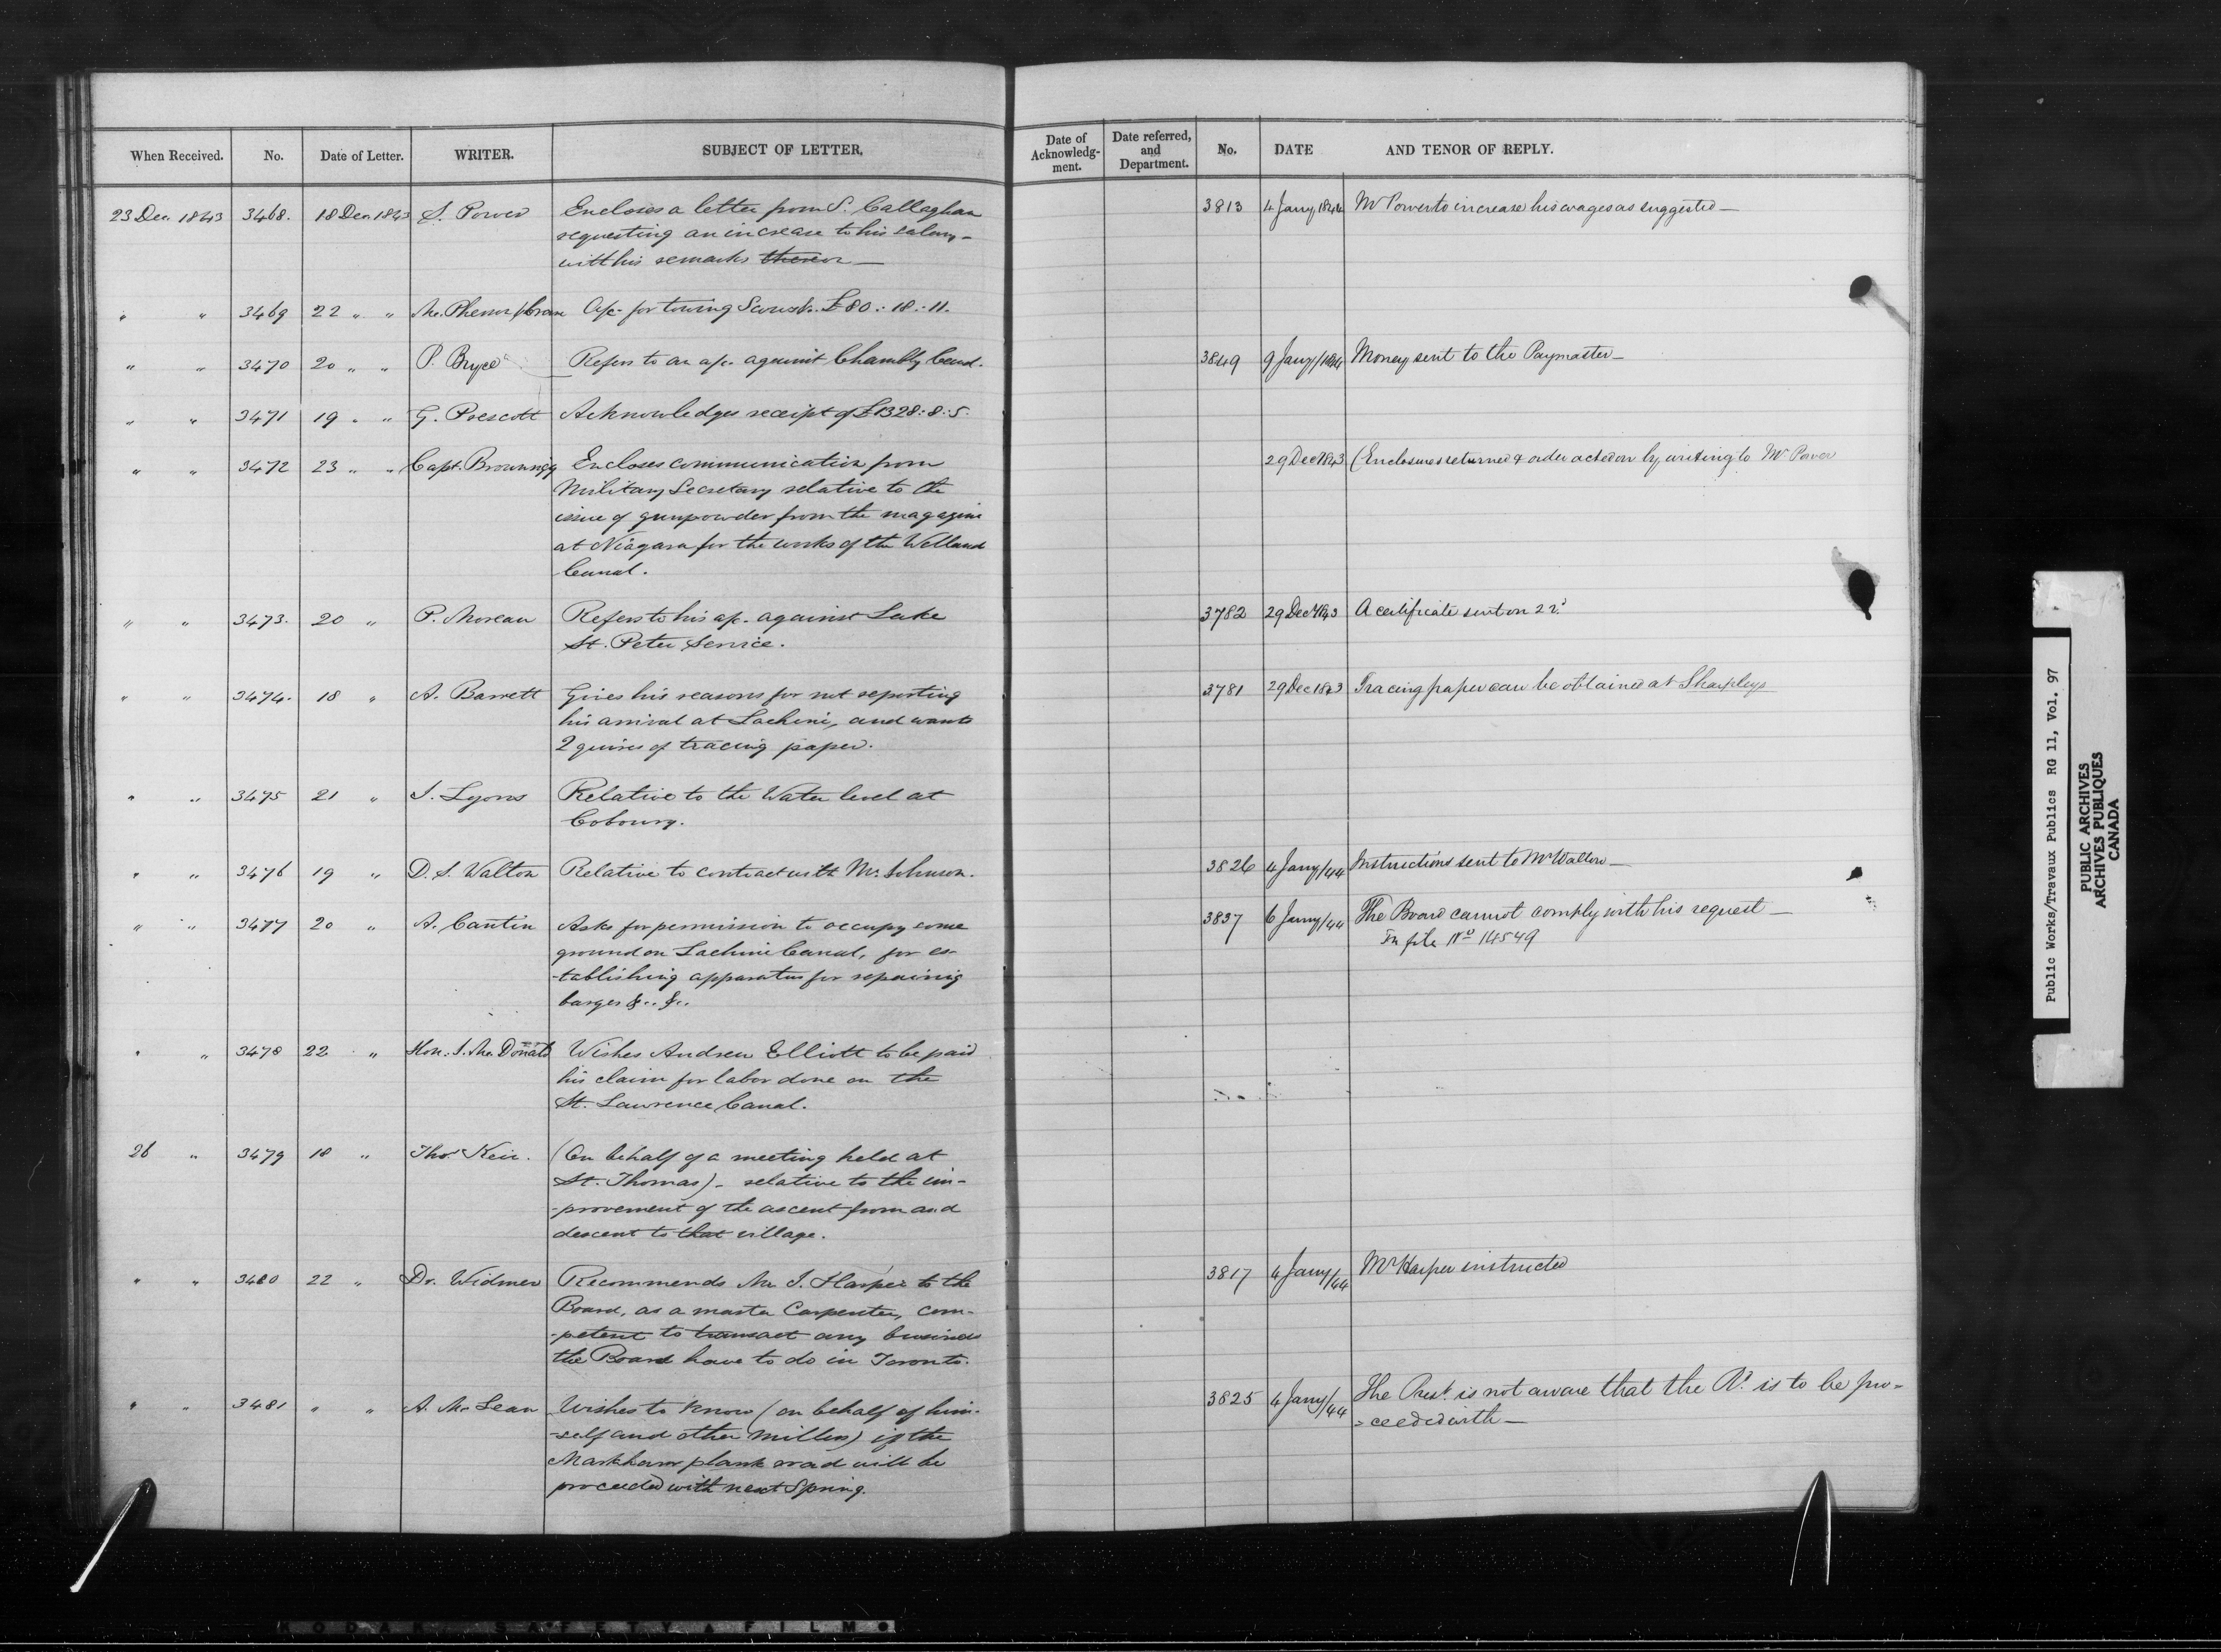 When Received. No. Date of Letter. WRITER. SUBJECT OF LETTER.
Date of Acknowledg-ment. Date referred, and Department. No. DATE AND TENOR OF REPLY.
23 Dec. 1843 3468. 18 Dec. 1843 S. Power Encloses a letter from S. Callaghan
requesting an increase to his salary -
with his remarks thereon —
3813 4 Jany 1844 Mr Power to increase his wages as suggested —
" " 3469 22 " " Mc.Pherson & Crane A/c- for towing Scows &c. £80:18:11.
" " 3470 20 " " P. Bryce Refers to an a/c. against Chambly Canal.
3849 9 Jany/1844 Money sent to the Paymaster —
" " 3471 19 " " G. Prescott Acknowledges receipt of £1328:8:5.
" " 3472 23 " " Capt. Brownrigg Encloses communication from
Military Secretary relative to the
issue of gunpowder from the magazine
at Niagara for the works of the Welland
Canal.
29 Dec 1843 (Enclosures returned & order acted on by writing to Mr Power
" " 3473. 20 " P. Moreau Refers to his a/c. against Lake
St. Peter Service.
3782 29 Dec 1843 A certificate sent on 22d
" " 3474. 18 " A. Barrett Gives his reasons for not reporting
his arrival at Lachine, and wants
2 quires of tracing paper.
3781 29 Dec 1843 Tracing paper can be obtained at Sharpleys
" " 3475 21 " J. Lyons Relative to the Water level at
Cobourg.
" " 3476 19 " D. S. Walton Relative to contract with Mr. Johnson.
3826 4 Jany/44 Instructions sent to Mr Walton —
" " 3477 20 " A. Cantin Asks for permission to occupy some
ground on Lachine Canal, for es-
-tablishing apparatus for repairing
barges &c. &c.
3837 6 Jany/44 The Board cannot comply with his request —
In file No 14549
" " 3478 22 " Hon. J. Mc.Donald Wishes Andrew Elliott to be paid
his claim for labor done on the
St. Lawrence Canal.
26 " 3479 18 " Thos. Keir. (On behalf of a meeting held at
St. Thomas) - relative to the im-
-provement of the ascent from and
descent to that village.
" " 3480 22 " Dr. Widmer Recommends Mr. J. Harper to the
Board, as a master Carpenter, com-
-petent to transact any business
the Board have to do in Toronto.
3817 4 Jany/44 Mr Harper instructed
" " 3481 " " A. McLean Wishes to know (on behalf of him-
-self and other Millers) if the
Markham plank road will be
proceeded with next Spring.
3825 4 Jany/44 The Prest. is not aware that the Rd. is to be pro-
-ceeded with —
Public Works/Travaux Publics RG 11, Vol. 97
PUBLIC ARCHIVES
ARCHIVES PUBLIQUES
CANADA
KODAK SAFETY FILM